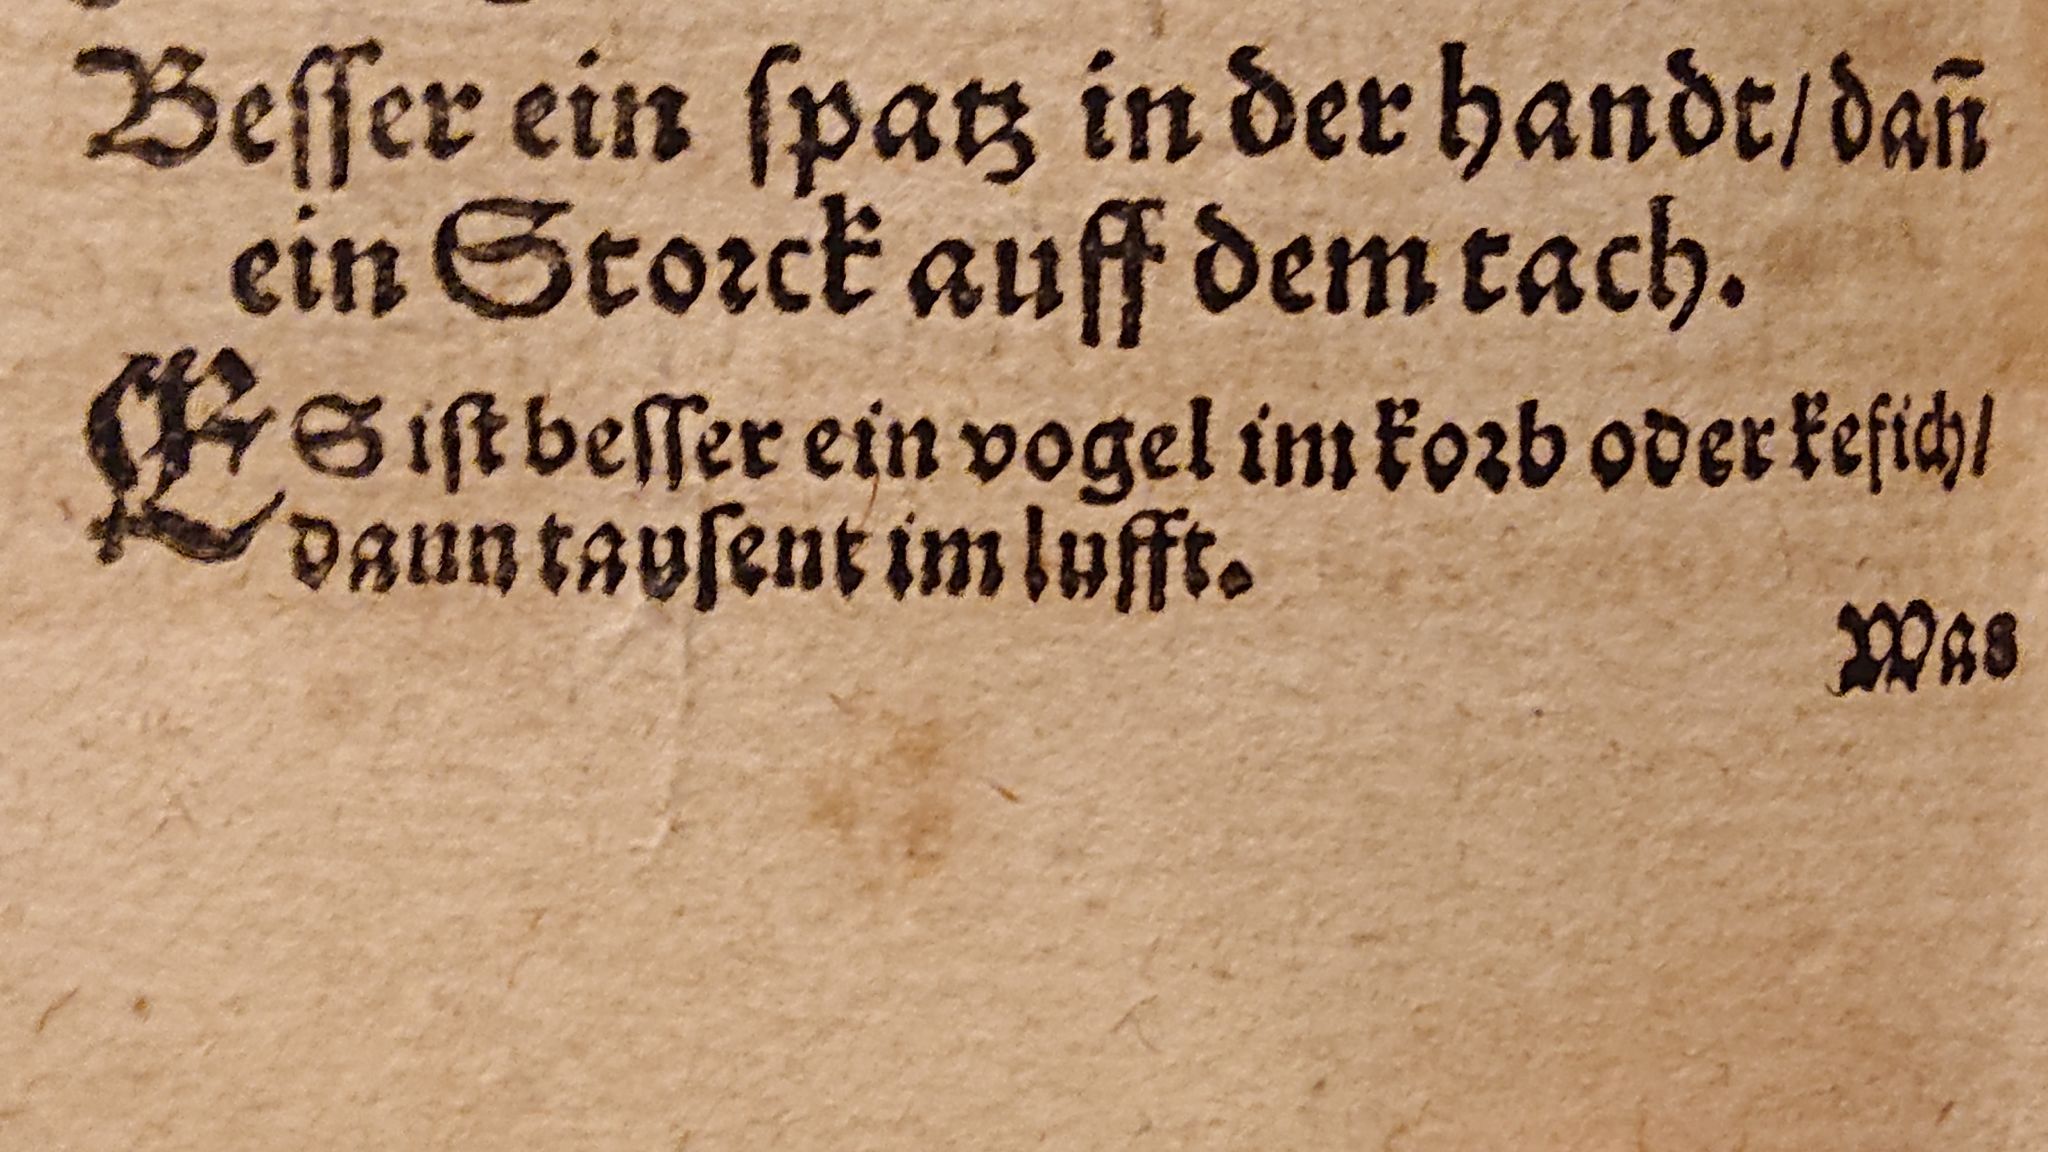 Beſſer ein ſpatz in der handt/ dañ
ein Storck auff dem tach.
ES iſt beſſer ein vogel im korb oder kefich/
dann tauſent im lufft.
Was